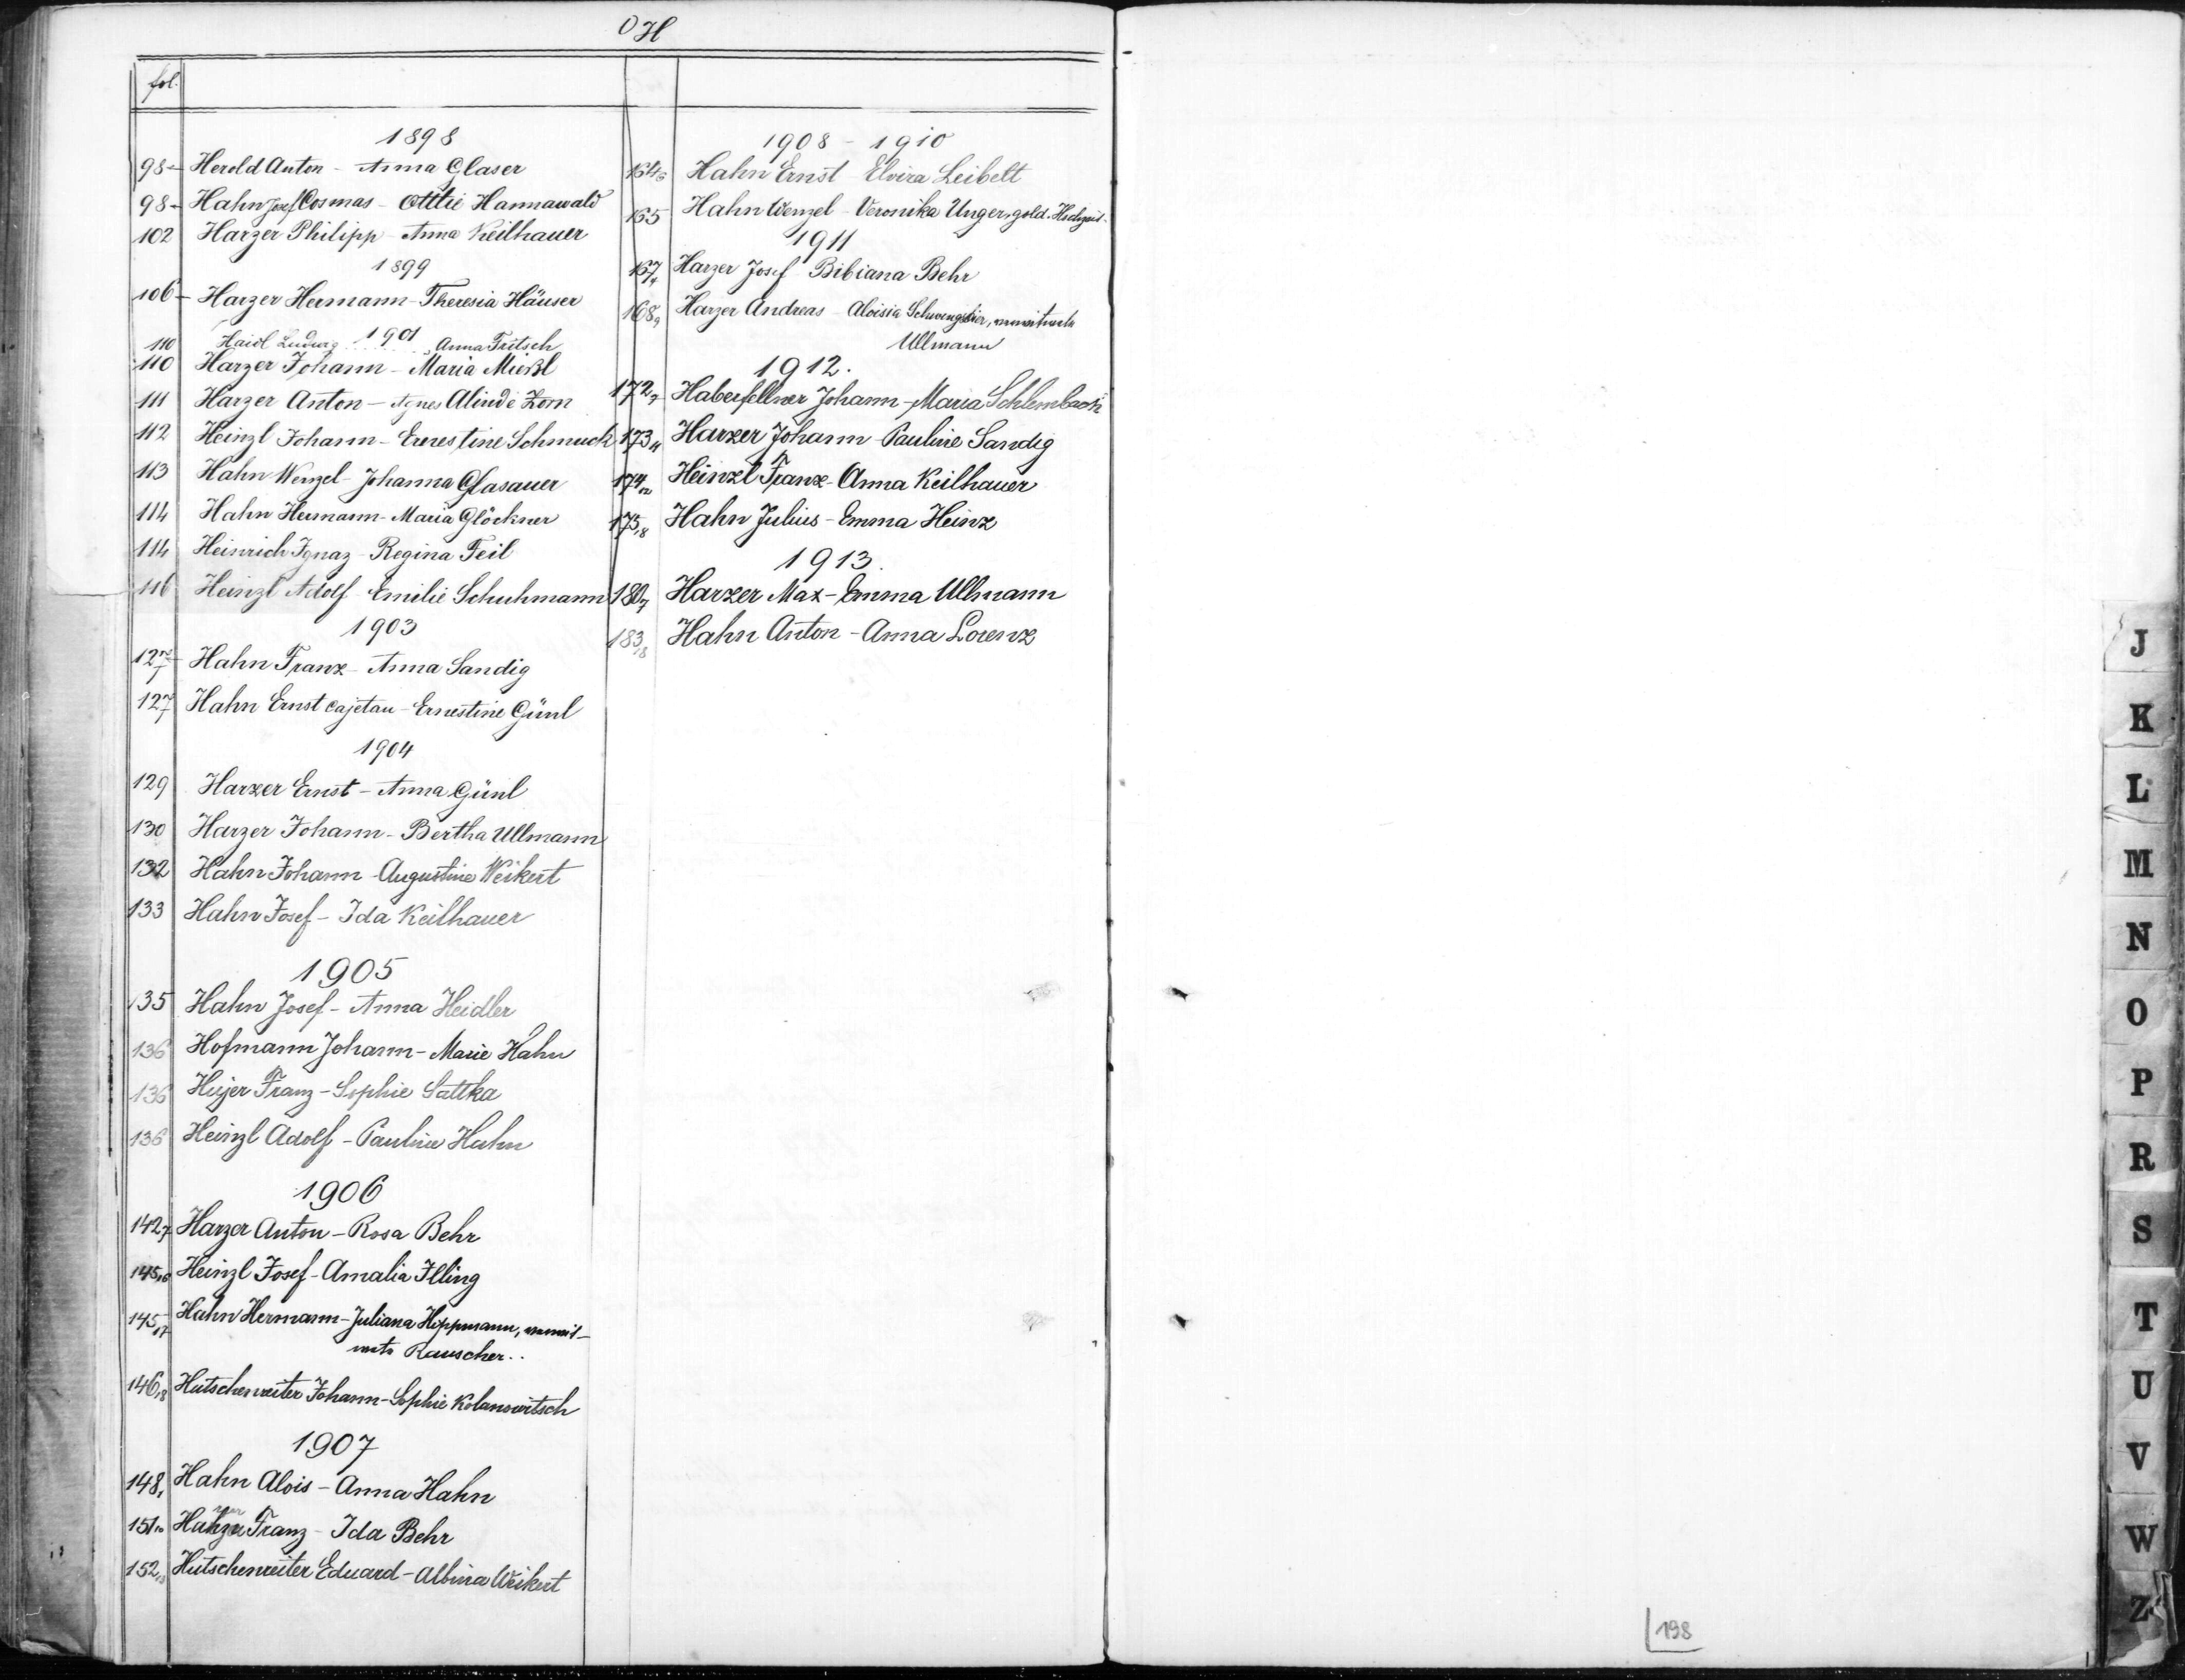 H
fol.
1898
98- Herold Anton - Anna Glaser
98- Hahn Josef Cosmas - Ottlie Hannawald
102 Harzer Philipp - Anna Keilhauer
1899
106- Harzer Hermann - Theresia Häuser
1901
110 Haidl Ludwig Anna Fritsch
110 Harzer Johann - Maria Mießl
111 Harzer Anton - Agnes Alinde Zorn
112 Heinzl Johann - Ernestine Schmuck
113 Hahn Wenzel - Johanna Glasauer
114 Hahn Hermann - Maria Glöckner
114 Heinrich Ignaz - Regina Feil
116 Heinzl Adolf - Emilie Schuhmann
1903
127 Hahn Franz - Anna Sandig
127 Hahn Ernst Cajetan - Ernestine Günl
1904
129 Harzer Ernst - Anna Günl
130 Harzer Johann - Bertha Ullmann
132 Hahn Johann - Augustine Weikert
133 Hahn Josef - Ida Keilhauer
1905
135 Hahn Josef - Anna Heidler
136 Hofmann Johann - Marie Hahn
136 Hujer Franz - Sophie Sattka
136 Heinzl Adolf - Pauline Hahn
1906
142,7 Harzer Anton - Rosa Behr
145,16 Heinzl Josef - Amalia Illing
145,17 Hahn Hermann - Juliana Hoppmann, verwit-
wete Rauscher..
146,18 Hutschenreiter Johann - Sophie Kolanowitsch
1907
148,1 Hahn Alois - Anna Hahn
151,10 Franz - Ida Behr
152,13 Hutschenreiter Eduard - Albina Weikert
1908 - 1910
164,6 Hahn Ernst - Elvira Leibelt
165 Hahn Wenzel - Veronika Unger, gold. Hochzeit.
1911
167,4 Harzer Josef - Bibiana Behr
168,9 Harzer Andreas - Aloisia , verwitwete
Ullmann
1912.
172,7 Haberfellner Johann - Maria Schlembach
173,11 Harzer Johann - Pauline Sandig
174,12 Heinzl Franz - Anna Keilhauer
175,18 Hahn Julius - Emma Heinz
1913.
180,7 Harzer Max - Emma Ullmann
183,18 Hahn Anton - Anna Lorenz
J
K
L
M
N
O
P
R
S
T
U
V
W
Z
198